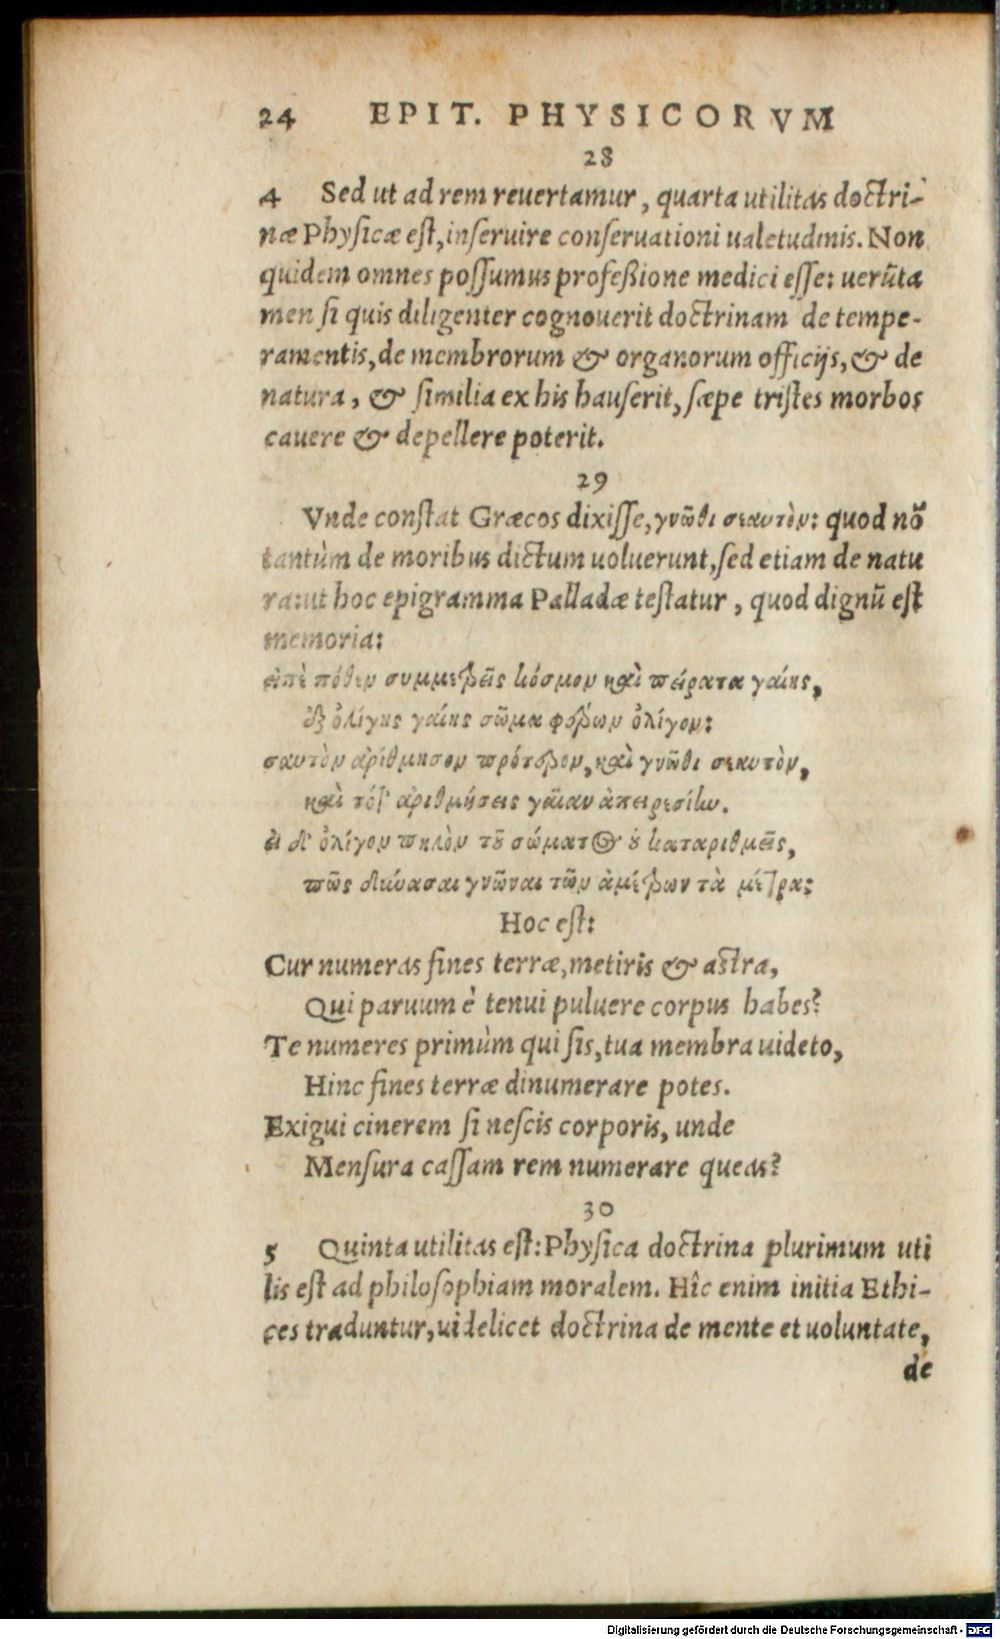 24 EPIT. PHYSICORVM
28
4 Sed ut ad rem reuertamur, quarta utilitas doctri-
næ Physicæ est, inseruire conseruationi ualetudinis. Non
quidem omnes possumus professione medici esse: uerũta
men si quis diligenter cognouerit doctrinam de tempe-
ramentis, de membrorum & organorum officijs, & de
natura, & similia ex his hauserit, sæpe tristes morbos
cauere & depellere poterit.
29
Vnde constat Græcos dixisse, γνῶθι σεαυτὸν: quod nõ
tantùm de moribus dictum uoluerunt, sed etiam de natu
ra: ut hoc epigramma Palladæ testatur, quod dignũ est
memoria:
εἰπὲ πόθεν συμμετρεῖς κόσμον καὶ πείρατα γαίης,
ἐξ ὀλίγης γαίης σῶμα φέρων ὀλίγον:
σαυτὸν ἀρίθμησον πρότερον, καὶ γνῶθι σεαυτὸν,
καὶ τότ' ἀριθμήσεις γαῖαν ἀπειρεσίην.
εἰ δ' ὀλίγον πηλὸν τοῦ σώματος οὐ καταριθμεῖς,
πῶς δύνασαι γνῶναι τῶν ἀμέτρων τὰ μέτρα;
Hoc est:
Cur numeras fines terræ, metiris & astra,
Qui paruum è tenui puluere corpus habes?
Te numeres primùm qui sis, tua membra uideto,
Hinc fines terræ dinumerare potes.
Exigui cinerem si nescis corporis, unde
Mensura cassam rem numerare queas?
30
5 Quinta utilitas est: Physica doctrina plurimum uti
lis est ad philosophiam moralem. Hîc enim initia Ethi-
ces traduntur, uidelicet doctrina de mente et uoluntate,
de
Digitalisierung gefördert durch die Deutsche Forschungsgemeinschaft - DFG